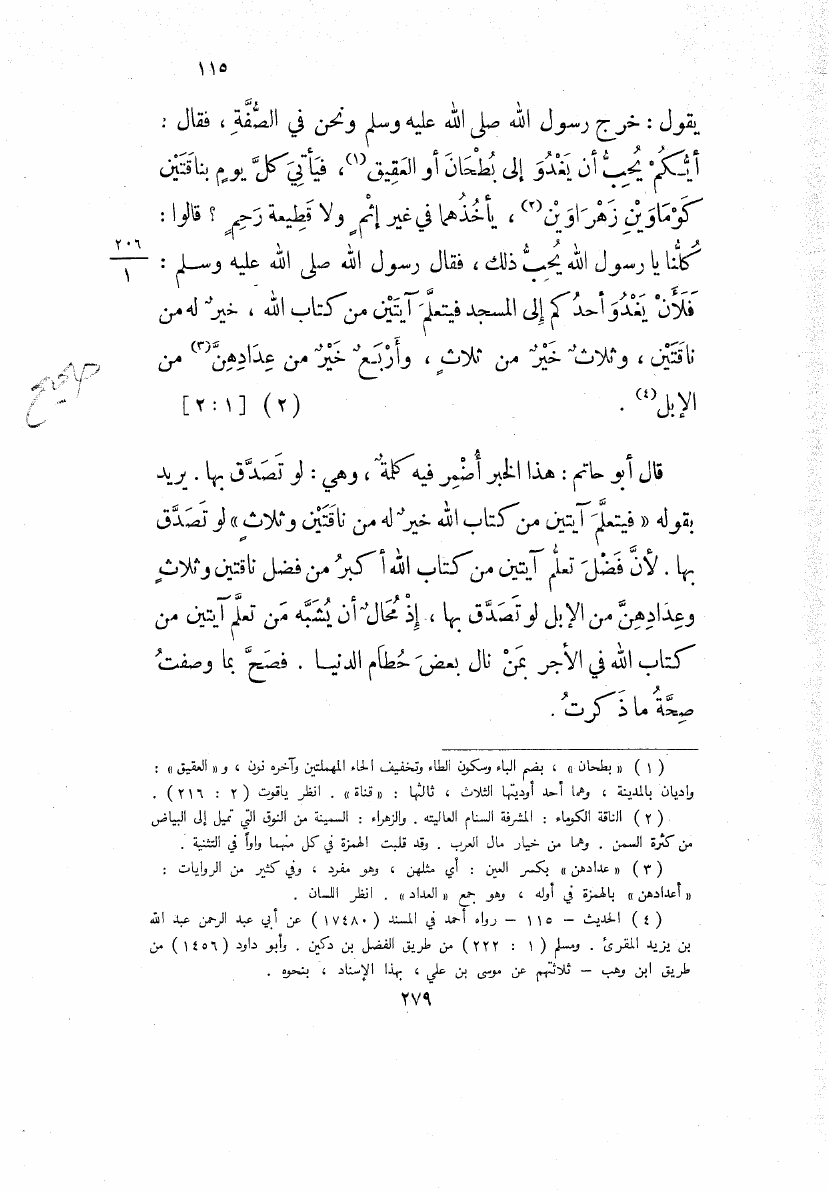 ١١٥
يقول : خرج رسول الله صلى الله عليه وسلم ونحن في الصُّفَّةِ ، فقال :
أيُّكُمْ يُحِبُّ أن يَغْدُوَ إلى بُطْحَانَ أو العَقِيق(١)، فيَأتِيَ كلَّ يومٍ بناقَتَيْنِ
كَوْمَاوَيْنِ زَهْرَاوَيْنِ(٢) ، يأخُذُهما في غير إثْمٍ ولا قَطِيعة رَحِمٍ ؟ قالوا :
كُلُّنا يا رسول الله يُحِبُّ ذلك ، فقال رسول الله صلى الله عليه وسلم :
٢٠٦
١
فَلَأَنْ يَغْدُوَ أحدُكم إلى المسجد فيتعلَّمَ آيتَيْنِ من كتاب الله ، خيرٌ له من
ناقَتَيْنِ ، وثلاثٌ خَيْرٌ من ثلاثٍ ، وأَرْبَعٌ خَيْرٌ من عِدَادِهِنَّ(٣) من
صحيح
الإبل(٤) . (٢) [٢:١]
قال أبو حاتم : هذا الخبر أُضْمِر فيه كلمةٌ ، وهي : لو تَصَدَّق بها . يريد
بقوله « فيتعلَّمَ آيتين من كتاب الله خيرٌ له من ناقَتَيْنِ وثلاثٍ » لو تَصَدَّق
بها . لأنَّ فَضْلَ تعلُّم آيتين من كتاب الله أكبرُ من فضل ناقتين وثلاثٍ
وعِدَادِهِنَّ من الإبل لو تَصَدَّق بها ، إذْ مُحَالٌ أن يُشَبَّه مَن تعلَّم آيتين من
كتاب الله في الأجر بمَنْ نال بعضَ حُطَامِ الدنيا . فصَحَّ بما وصفتُ
صِحَّةُ ما ذَكرتُ .
(١) « بطحان » ، بضم الباء وسكون الطاء وتخفيف الحاء المهملتين وآخره نون ، و « العقيق » :
واديان بالمدينة ، وهما أحد أوديتها الثلاث ، ثالثها : « قناة » . انظر ياقوت (٢ : ٢١٦) .
(٢) الناقة الكوماء : المشرفة السنام العاليته . والزهراء : السمينة من النوق التي تميل إلى البياض
من كثرة السمن . وهما من خيار مال العرب . وقد قلبت الهمزة في كل منهما واواً في التثنية .
(٣) « عدادهن » بكسر العين : أي مثلهن ، وهو مفرد ، وفي كثير من الروايات :
« أعدادهن » بالهمزة في أوله ، وهو جمع « العداد » . انظر اللسان .
(٤) الحديث – ١١٥ – رواه أحمد في المسند (١٧٤٨٠) عن أبي عبد الرحمن عبد الله
بن يزيد المقرئ . ومسلم (١ : ٢٢٢) من طريق الفضل بن دكين . وأبو داود (١٤٥٦) من
طريق ابن وهب – ثلاثتهم عن موسى بن علي ، بهذا الإسناد ، بنحوه .
٢٧٩